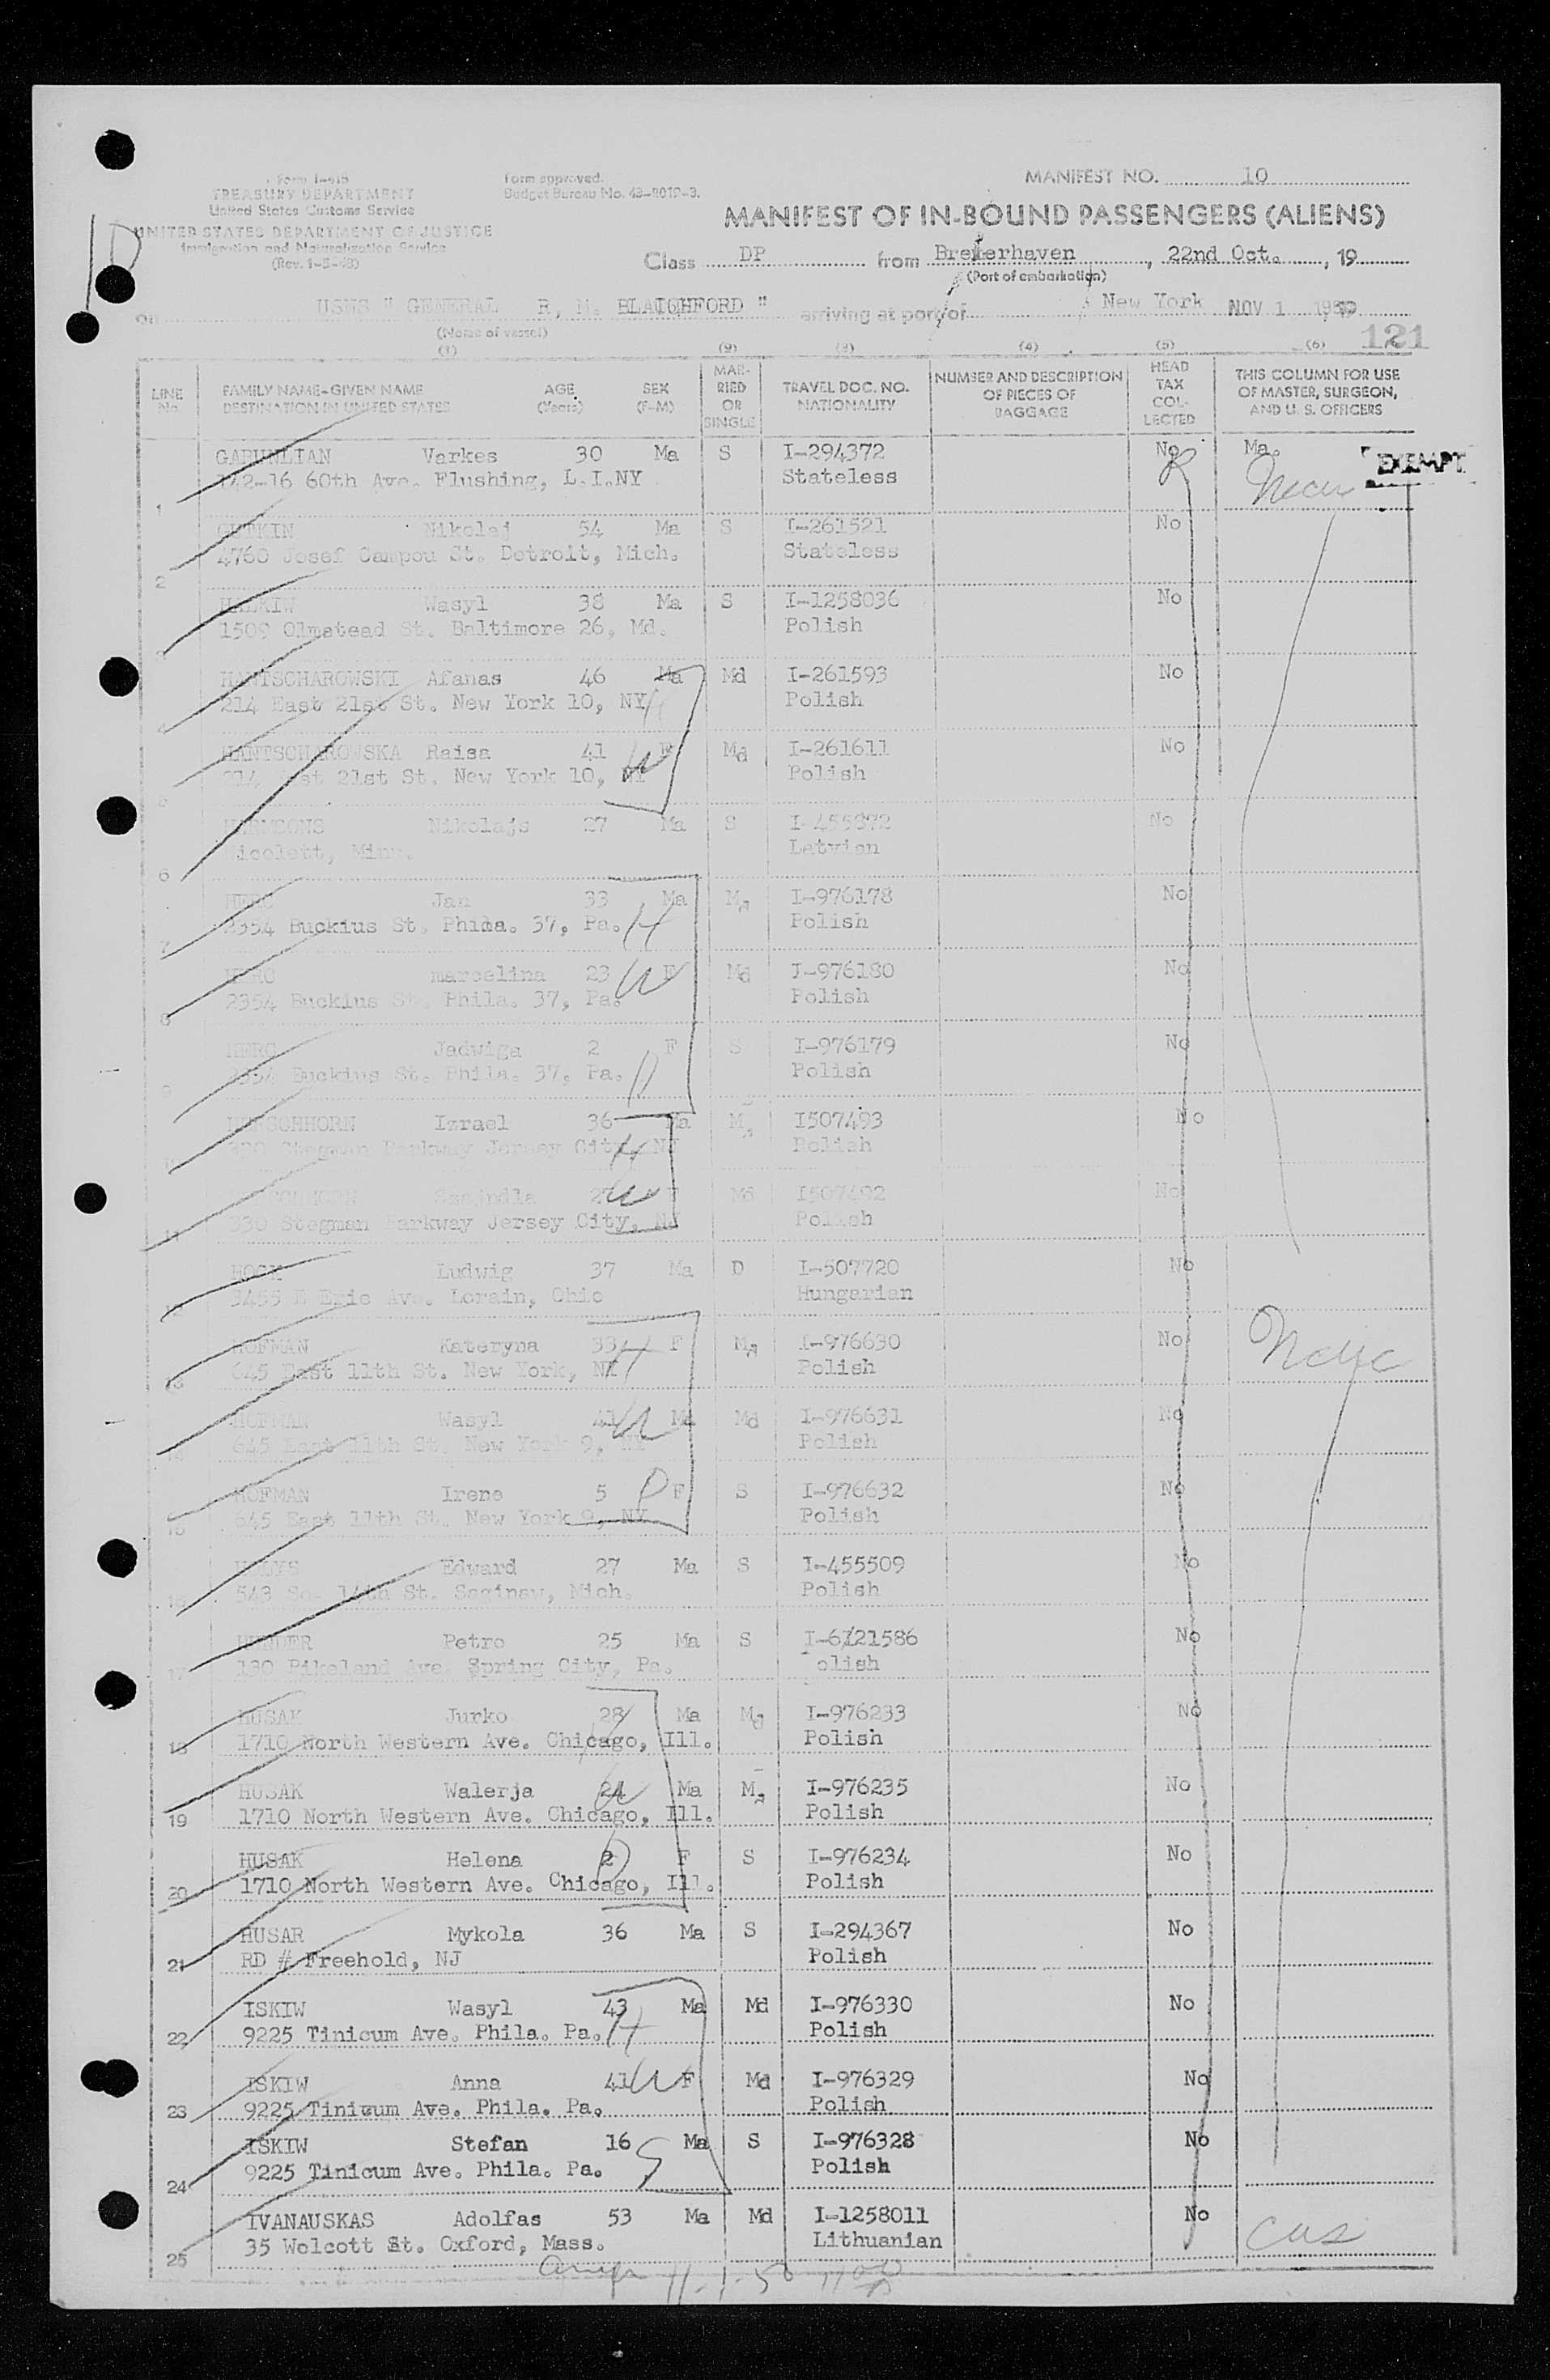 Form I-415
TREASURY DEPARTMENT
United States Customs Service
UNITED STATES DEPARTMENT OF JUSTICE
Immigration and Naturalization Service
(Rev. 1-5-48)
Form approved.
Budget Bureau No. 43-R019-3.
MANIFEST NO. 10
MANIFEST OF IN-BOUND PASSENGERS (ALIENS)
Class DP from Bremerhaven, 22nd Oct., 19
(Port of embarkation)
on USNS " GENERAL R. M. BLATCHFORD " arriving at port of New York NOV 1 1950
(Name of vessel)
121
(1) (2) (3) (4) (5) (6)
LINE No. FAMILY NAME-GIVEN NAME DESTINATION IN UNITED STATES AGE (Years) SEX (F-M) MARRIED OR SINGLE TRAVEL DOC. NO. NATIONALITY NUMBER AND DESCRIPTION OF PIECES OF BAGGAGE HEAD TAX COLLECTED THIS COLUMN FOR USE OF MASTER, SURGEON, AND U. S. OFFICERS
GARUNLIAN Varkes 30 Ma S I-294372 No Ma. EXEMPT
1 142-16 60th Ave. Flushing, L.I.NY Stateless
GUTKIN Nikolaj 54 Ma S I-261521 No
2 4760 Josef Campou St. Detroit, Mich. Stateless
HALKIW Wasyl 38 Ma S I-1258036 No
3 1509 Olmstead St. Baltimore 26, Md. Polish
HANTSCHAROWSKI Afanas 46 Ma Md I-261593 No
4 214 East 21st St. New York 10, NY H Polish
HANTSCHAROWSKA Raisa 41 W F Md I-261611 No
5 214 East 21st St. New York 10, NY Polish
Nikolajs 27 Ma S I-455872 No
6 Nicolett, Minn. Latvian
HERC Jan 33 Ma Md I-976178 No
7 2354 Buckius St. Phila. 37, Pa. H Polish
HERC marcelina 23 W F Md I-976180 No
8 2354 Buckius St. Phila. 37, Pa. Polish
HERC Jadwiga 2 F S I-976179 No
9 2354 Buckius St. Phila. 37, Pa. D Polish
HERSCHHORN Izrael 36 Ma Md I507493 No
10 330 Stegman Parkway Jersey City, NJ H Polish
Szajndla 27 W F Md I507492 No
11 330 Stegman Parkway Jersey City, NJ Polish
HOCK Ludwig 37 Ma D I-507720 No
12 3455 E Erie Ave. Lorain, Ohio Hungarian
HOFMAN Kateryna 33 H F Md I-976630 No
13 645 East 11th St. New York, NY Polish
HOFMAN Wasyl 41 W Ma Md I-976631 No
14 645 East 11th St. New York 9, NY Polish
HOFMAN Irene 5 D F S I-976632 No
15 645 East 11th St. New York 9, NY Polish
Edward 27 Ma S I-455509 No
16 543 So. 14th St. Saginaw, Mich. Polish
HUNDER Petro 25 Ma S I-6121586 No
17 130 Pikeland Ave. Spring City, Pa. olish
HUSAK Jurko 28 Ma Md I-976233 No
18 1710 North Western Ave. Chicago, Ill. H Polish
HUSAK Walerja 24 W Ma Md I-976235 No
19 1710 North Western Ave. Chicago, Ill. Polish
HUSAK Helena 2 D F S I-976234 No
20 1710 North Western Ave. Chicago, Ill. Polish
HUSAR Mykola 36 Ma S I-294367 No
21 RD # Freehold, NJ Polish
ISKIW Wasyl 43 Ma Md I-976330 No
22 9225 Tinicum Ave. Phila. Pa. H Polish
ISKIW Anna 41 W F Md I-976329 No
23 9225 Tinicum Ave. Phila. Pa. Polish
ISKIW Stefan 16 Ma S I-976328 No
24 9225 Tinicum Ave. Phila. Pa. S Polish
IVANAUSKAS Adolfas 53 Ma Md I-1258011 No
25 35 Wolcott St. Oxford, Mass. Lithuanian
11-1-50